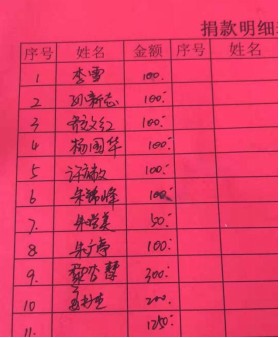 捐款明细
序号 姓名 金额 序号 姓名
1 李雪 100:
2 孙新志 100:
3 文红 100:
4 杨国华 100:
5 许 100:
6 朱锦峰 100:
7. 朱 50:
8 朱 100:
9. 黎 300:
10 200:
11. 1250: